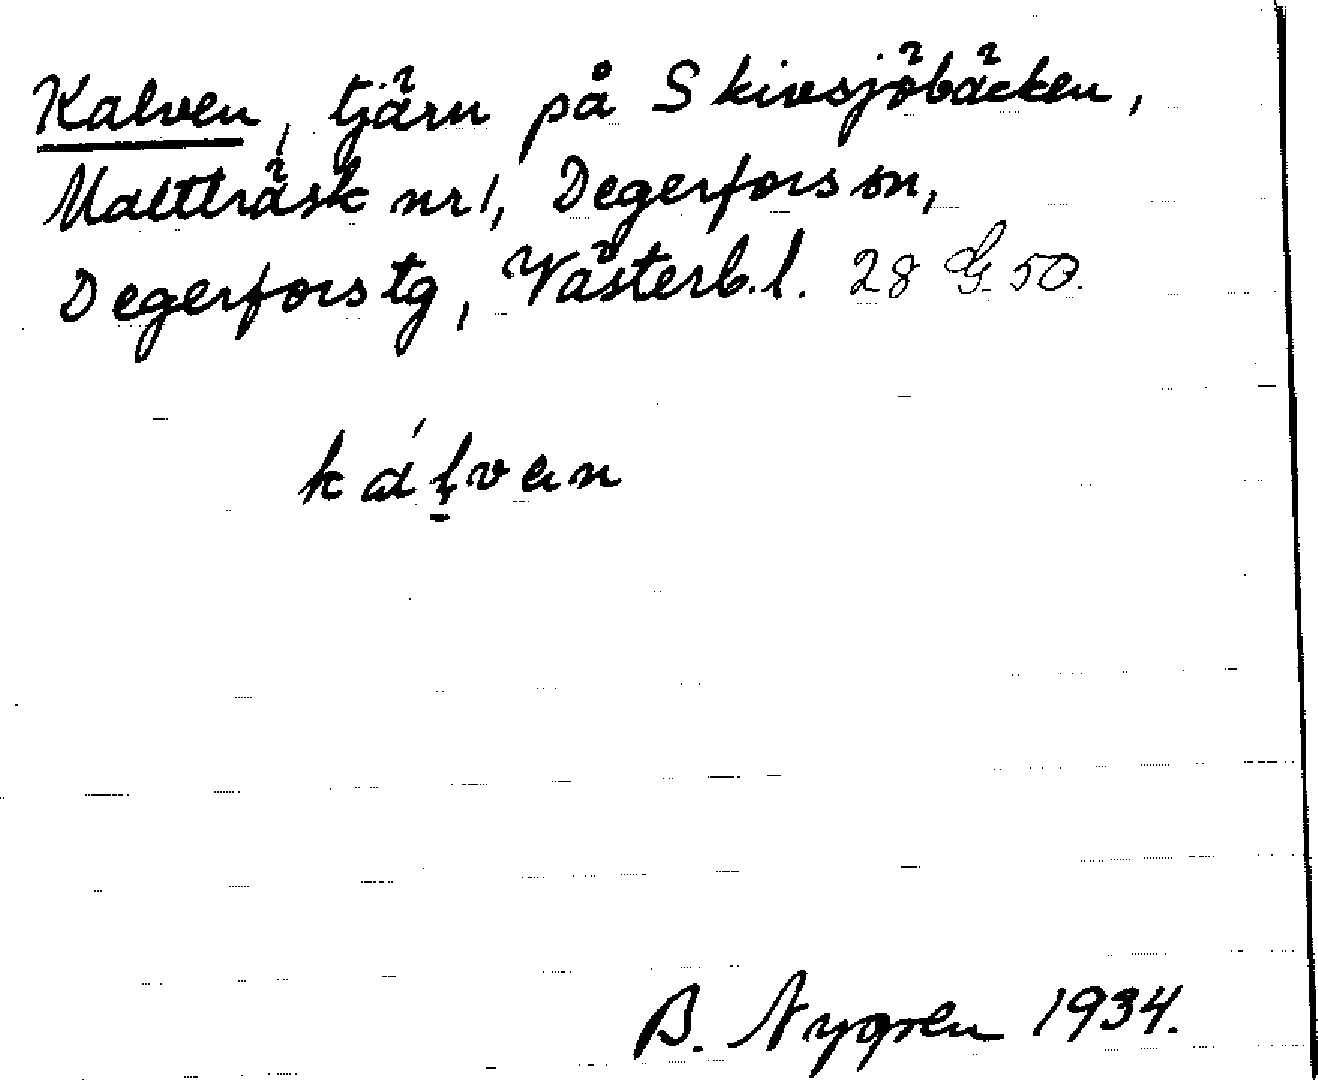 Kalven, tjärn på Skivsjöbäcken,
Maltträsk nr 1, Degerfors sn,
Degerfors tg, Västerb. l. 28 G. 50.
kálvən
B. Nygren 1934.